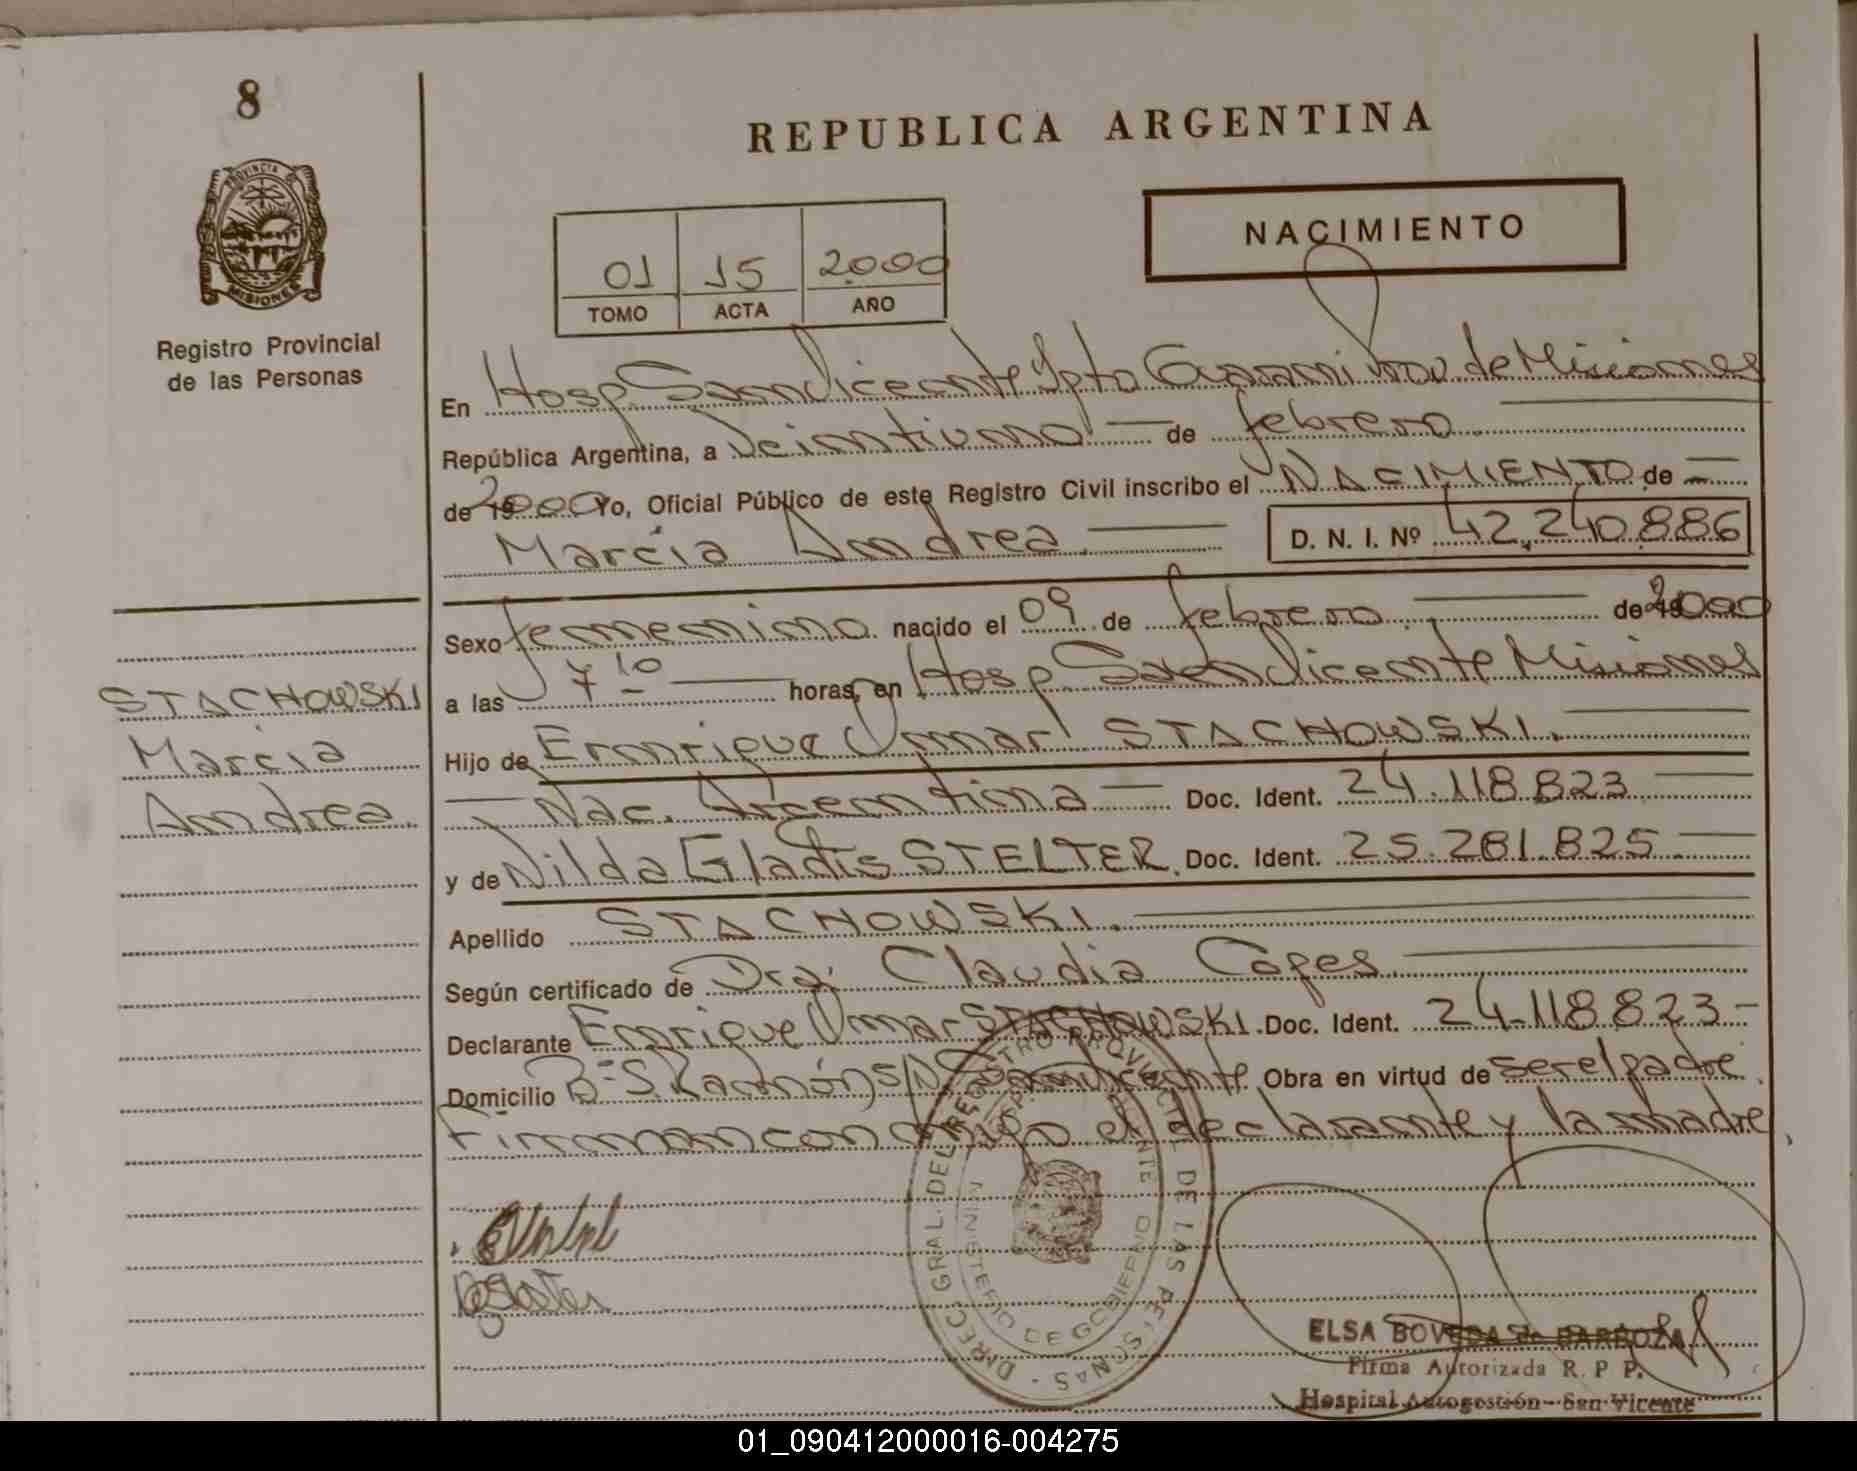 8
REPUBLICA ARGENTINA
PROVINCIA DE
MISIONES
Registro Provincial
de las Personas
NACIMIENTO
01 15 2000
TOMO ACTA AÑO
En Hosp. San Vicente Dpto Guaraní Prov de Misiones
República Argentina, a Veintiuno de febrero
de 2000 Yo, Oficial Público de este Registro Civil inscribo el NACIMIENTO de
Marcia Andrea. D. N. I. Nº 42.240.886
Sexo femenino nacido el 09 de febrero de 2000
a las 7 10 horas, en Hosp San Vicente Misiones
Hijo de Enrique Omar STACHOWSKI.
Nac. Argentina Doc. Ident. 24.118.823
y de Nilda Gladis STELTER. Doc. Ident. 25.281.825
Apellido STACHOWSKI.
Según certificado de Dra. Claudia
Declarante Enrique Omar STACHOWSKI. Doc. Ident. 24.118.823
Domicilio Bº S. Ramón S/N San Vicente Obra en virtud de ser el padre.
Firman conmigo el declarante y la madre.
STACHOWSKI
Marcia
Andrea.
DIREC. GRAL. DEL REGISTRO PROVINCIAL DE LAS PERSONAS
MINISTERIO DE GOBIERNO
ELSA BOVEDA de BARBOZA
Firma Autorizada R. P P.
Hospital Autogestión - San Vicente
01_090412000016-004275